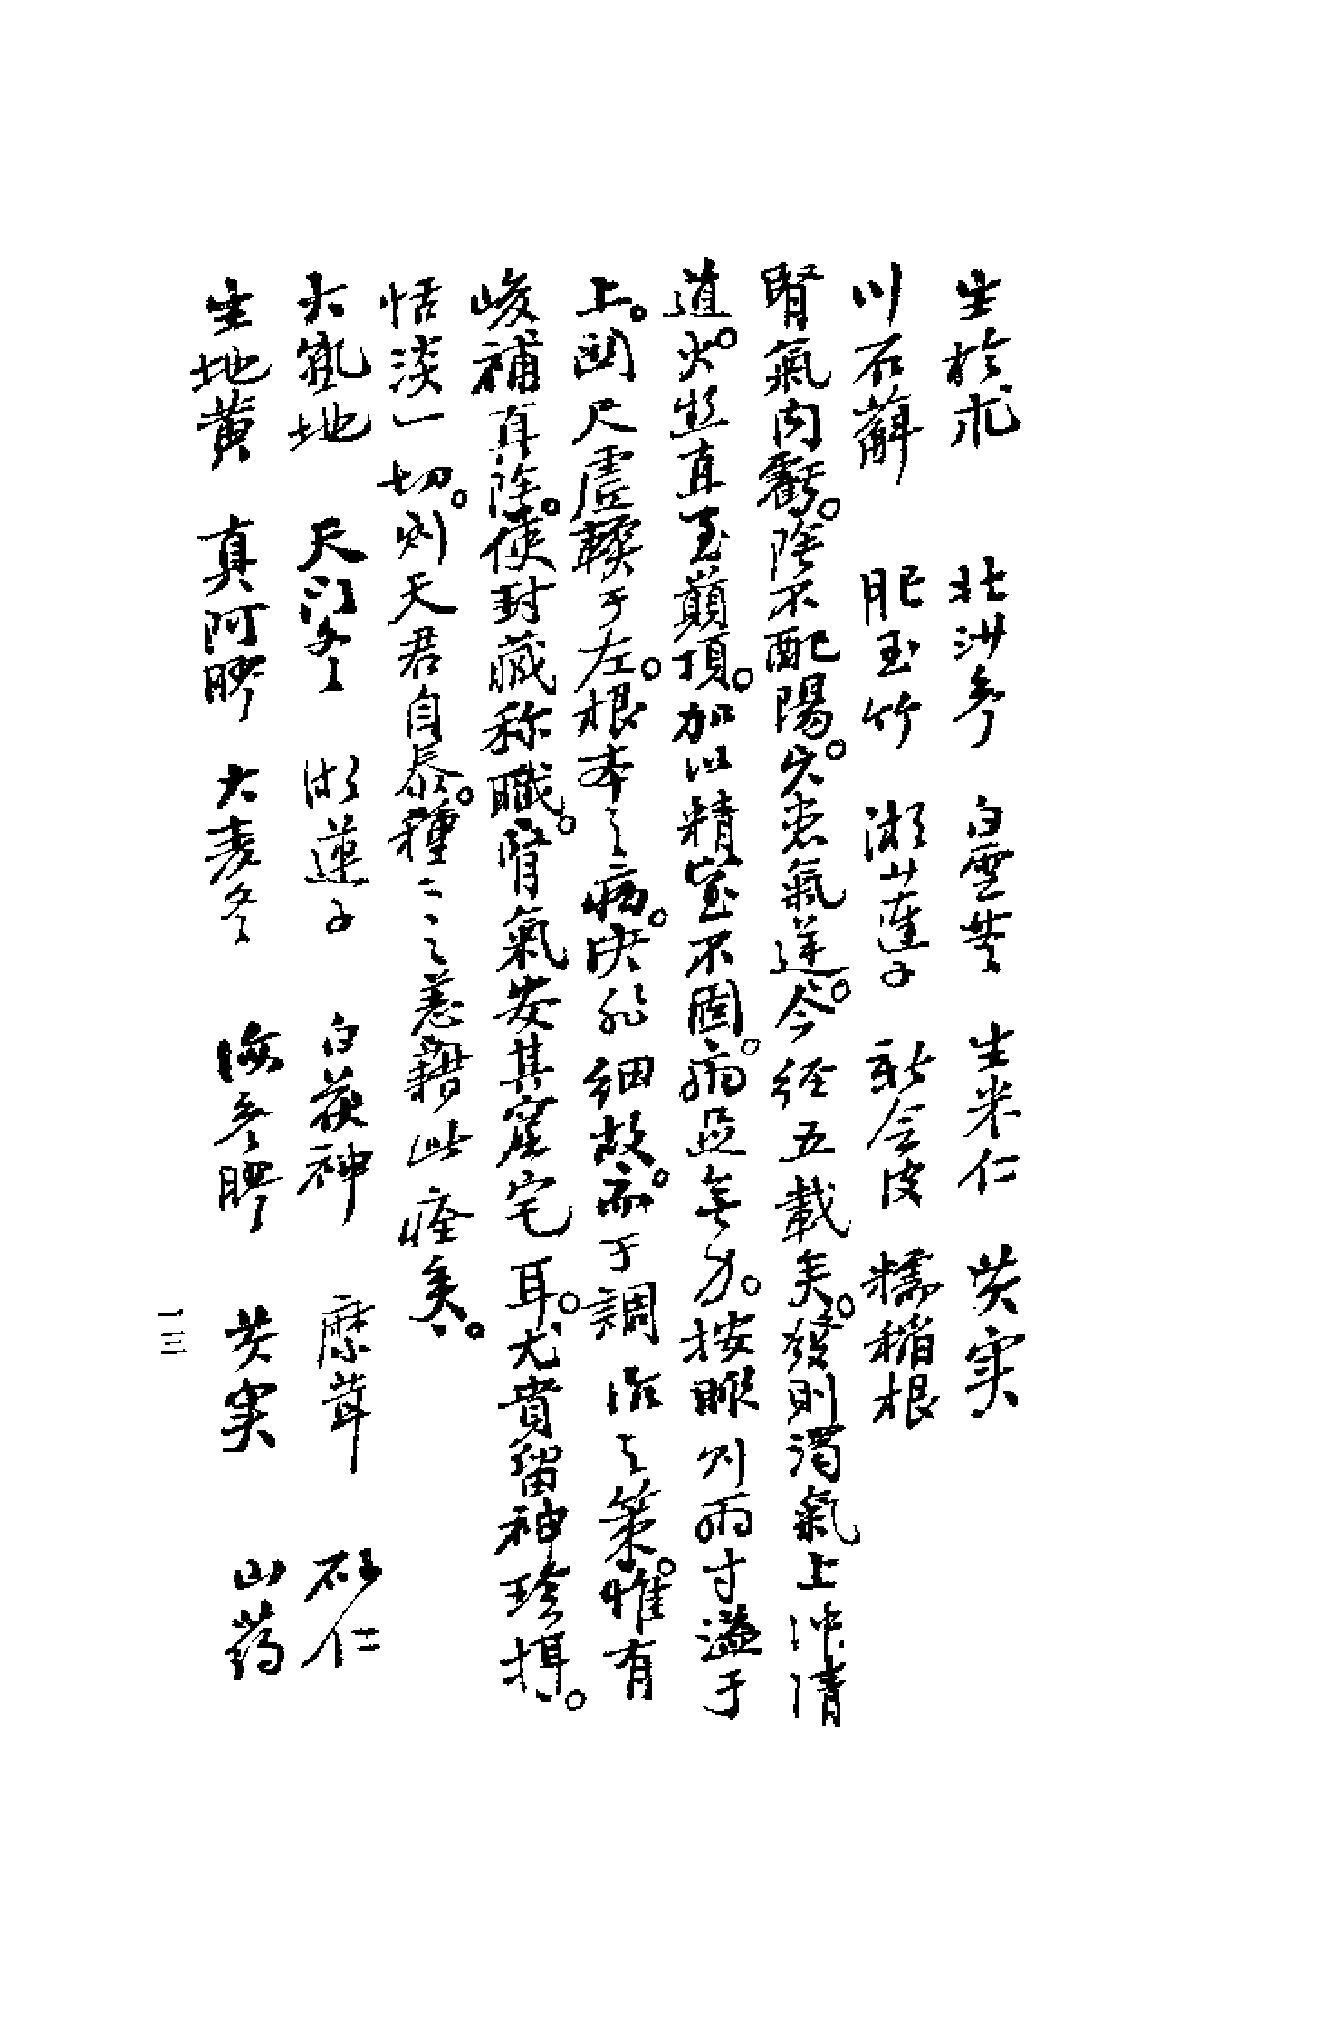 生於朮 北沙參 白雲苓 生米仁 芡实
川石斛 肥玉竹 湖蓮子 新会皮 糯稻根
腎氣内虧。陰不配陽。久患氣逆。今経五載矣。發則濁氣上冲清
道。火升直至巔頂。加以精室不固。病益無力。按脈则兩寸溢于
上。関尺虛軟于左。根本之病。决非細故。而于調治之策。惟有
峻補真陰。使封藏称職。腎氣安其窟宅耳。尤貴留神珍摂。
恬淡一切。则天君自泰。種〻之恙藉此痊矣。
大熟地 天門冬 湖蓮子 白茯神 麋茸 砂仁
生地黄 真阿膠 大麦冬 海参膠 芡実 山药
一三